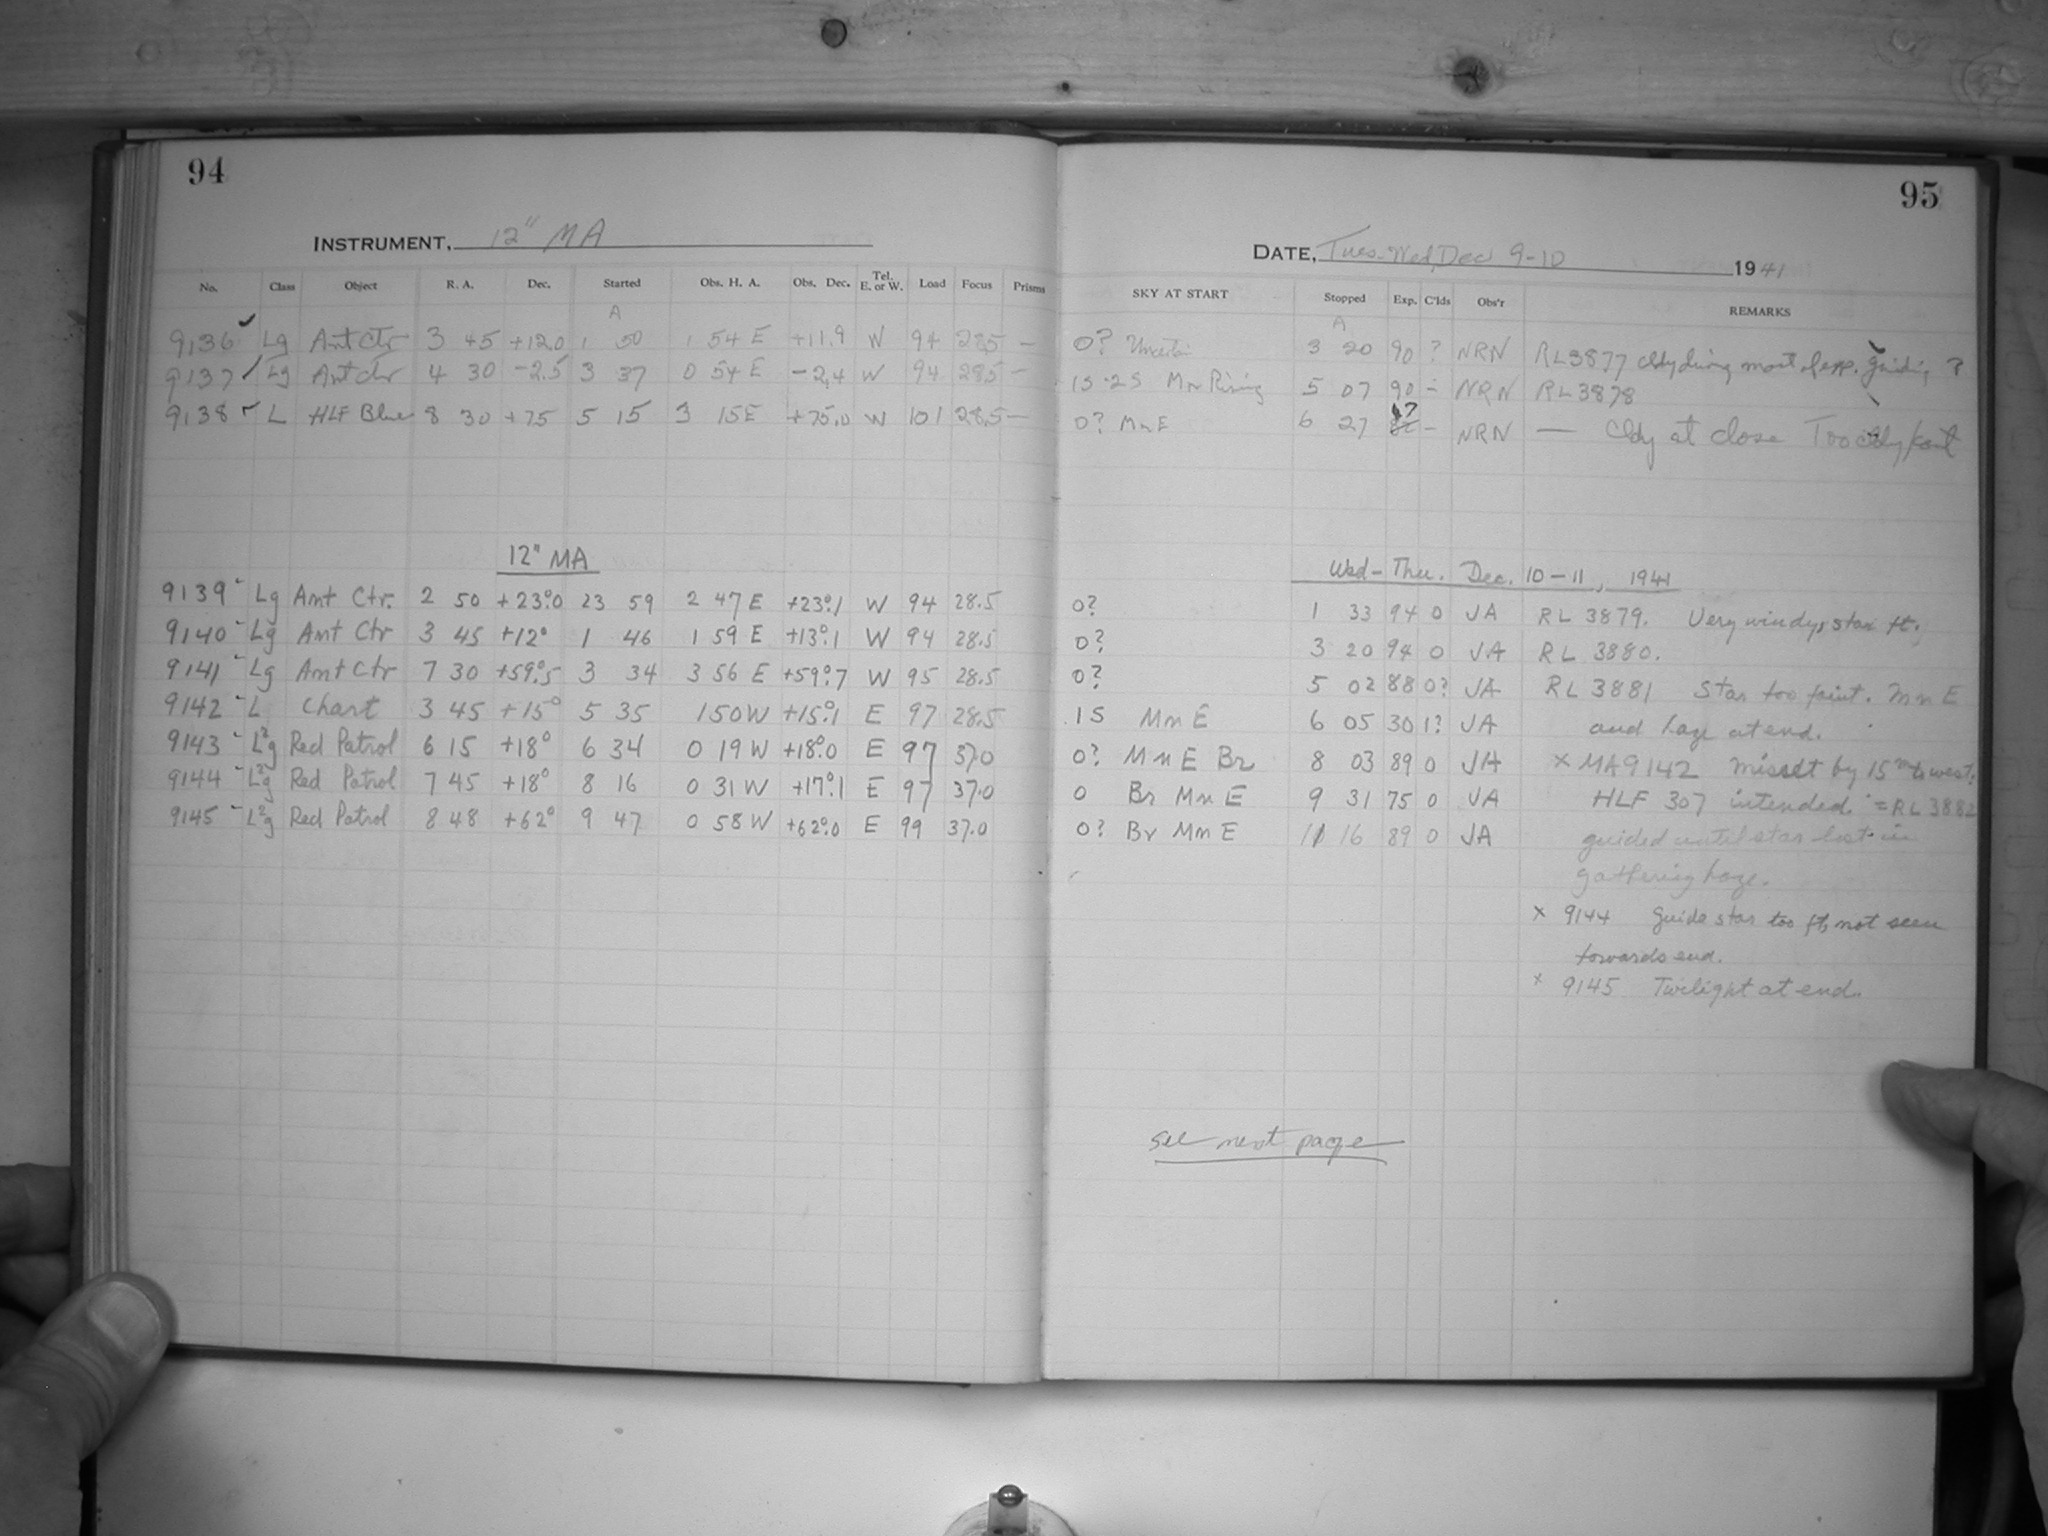 94
INSTRUMENT, 12" MA
No. Class Object R. A. Dec. Started Obs. H. A. Obs. Dec. Tel. E. or W. Load Focus Prisms
A
9136 ✓ Lg Ant Ctr 3 45 +12.0 1 50 1 54 E +11.9 W 94 28.5 —
9137 ✓ Lg Ant Ctr 4 30 -2.5 3 37 0 54 E -2.4 W 94 28.5 —
9138 ✓ L HLF Blue 8 30 +75 5 15 3 15 E +75.0 W 101 28.5 —
12" MA
9139 Lg Ant Ctr. 2 50 +23°.0 23 59 2 47 E +23°.1 W 94 28.5
9140 Lg Ant Ctr 3 45 +12° 1 46 1 59 E +13°.1 W 94 28.5
9141 Lg Ant Ctr 7 30 +59°.5 3 34 3 56 E +59°.7 W 95 28.5
9142 L Chart 3 45 +15° 5 35 1 50 W +15°.1 E 97 28.5
9143 L²g Red Patrol 6 15 +18° 6 34 0 19 W +18°.0 E 97 37.0
9144 L²g Red Patrol 7 45 +18° 8 16 0 31 W +17°.1 E 97 37.0
9145 L²g Red Patrol 8 48 +62° 9 47 0 58 W +62°.0 E 99 37.0
95
DATE, Tues-Wed, Dec 9-10 1941
SKY AT START Stopped Exp. C'lds Obs'r REMARKS
A
0? Uncertain 3 20 90 ? NRN RL3877 cldy during most of exp. guiding ?
1S-2S Mn Rising 5 07 90 - NRN RL3878
0? Mn E 6 27 - NRN — Cldy at close Too cldy
Wed-Thu. Dec. 10-11, 1941
0? 1 33 94 0 JA RL 3879. Very windy, star ft.
0? 3 20 94 0 JA RL 3880.
0? 5 02 88 0? JA RL 3881 Star too faint. Mn E
1S Mn E 6 05 30 1? JA and haze at end.
0? Mn E Br 8 03 89 0 JA x MA9142 misset by 15 m to west.
0 Br Mn E 9 31 75 0 JA HLF 307 intended. = RL 3882
0? Br Mn E 11 16 89 0 JA guided until star lost in
gathering haze.
x 9144 Guide star too ft, not seen
towards end.
x 9145 Twilight at end.
see next page